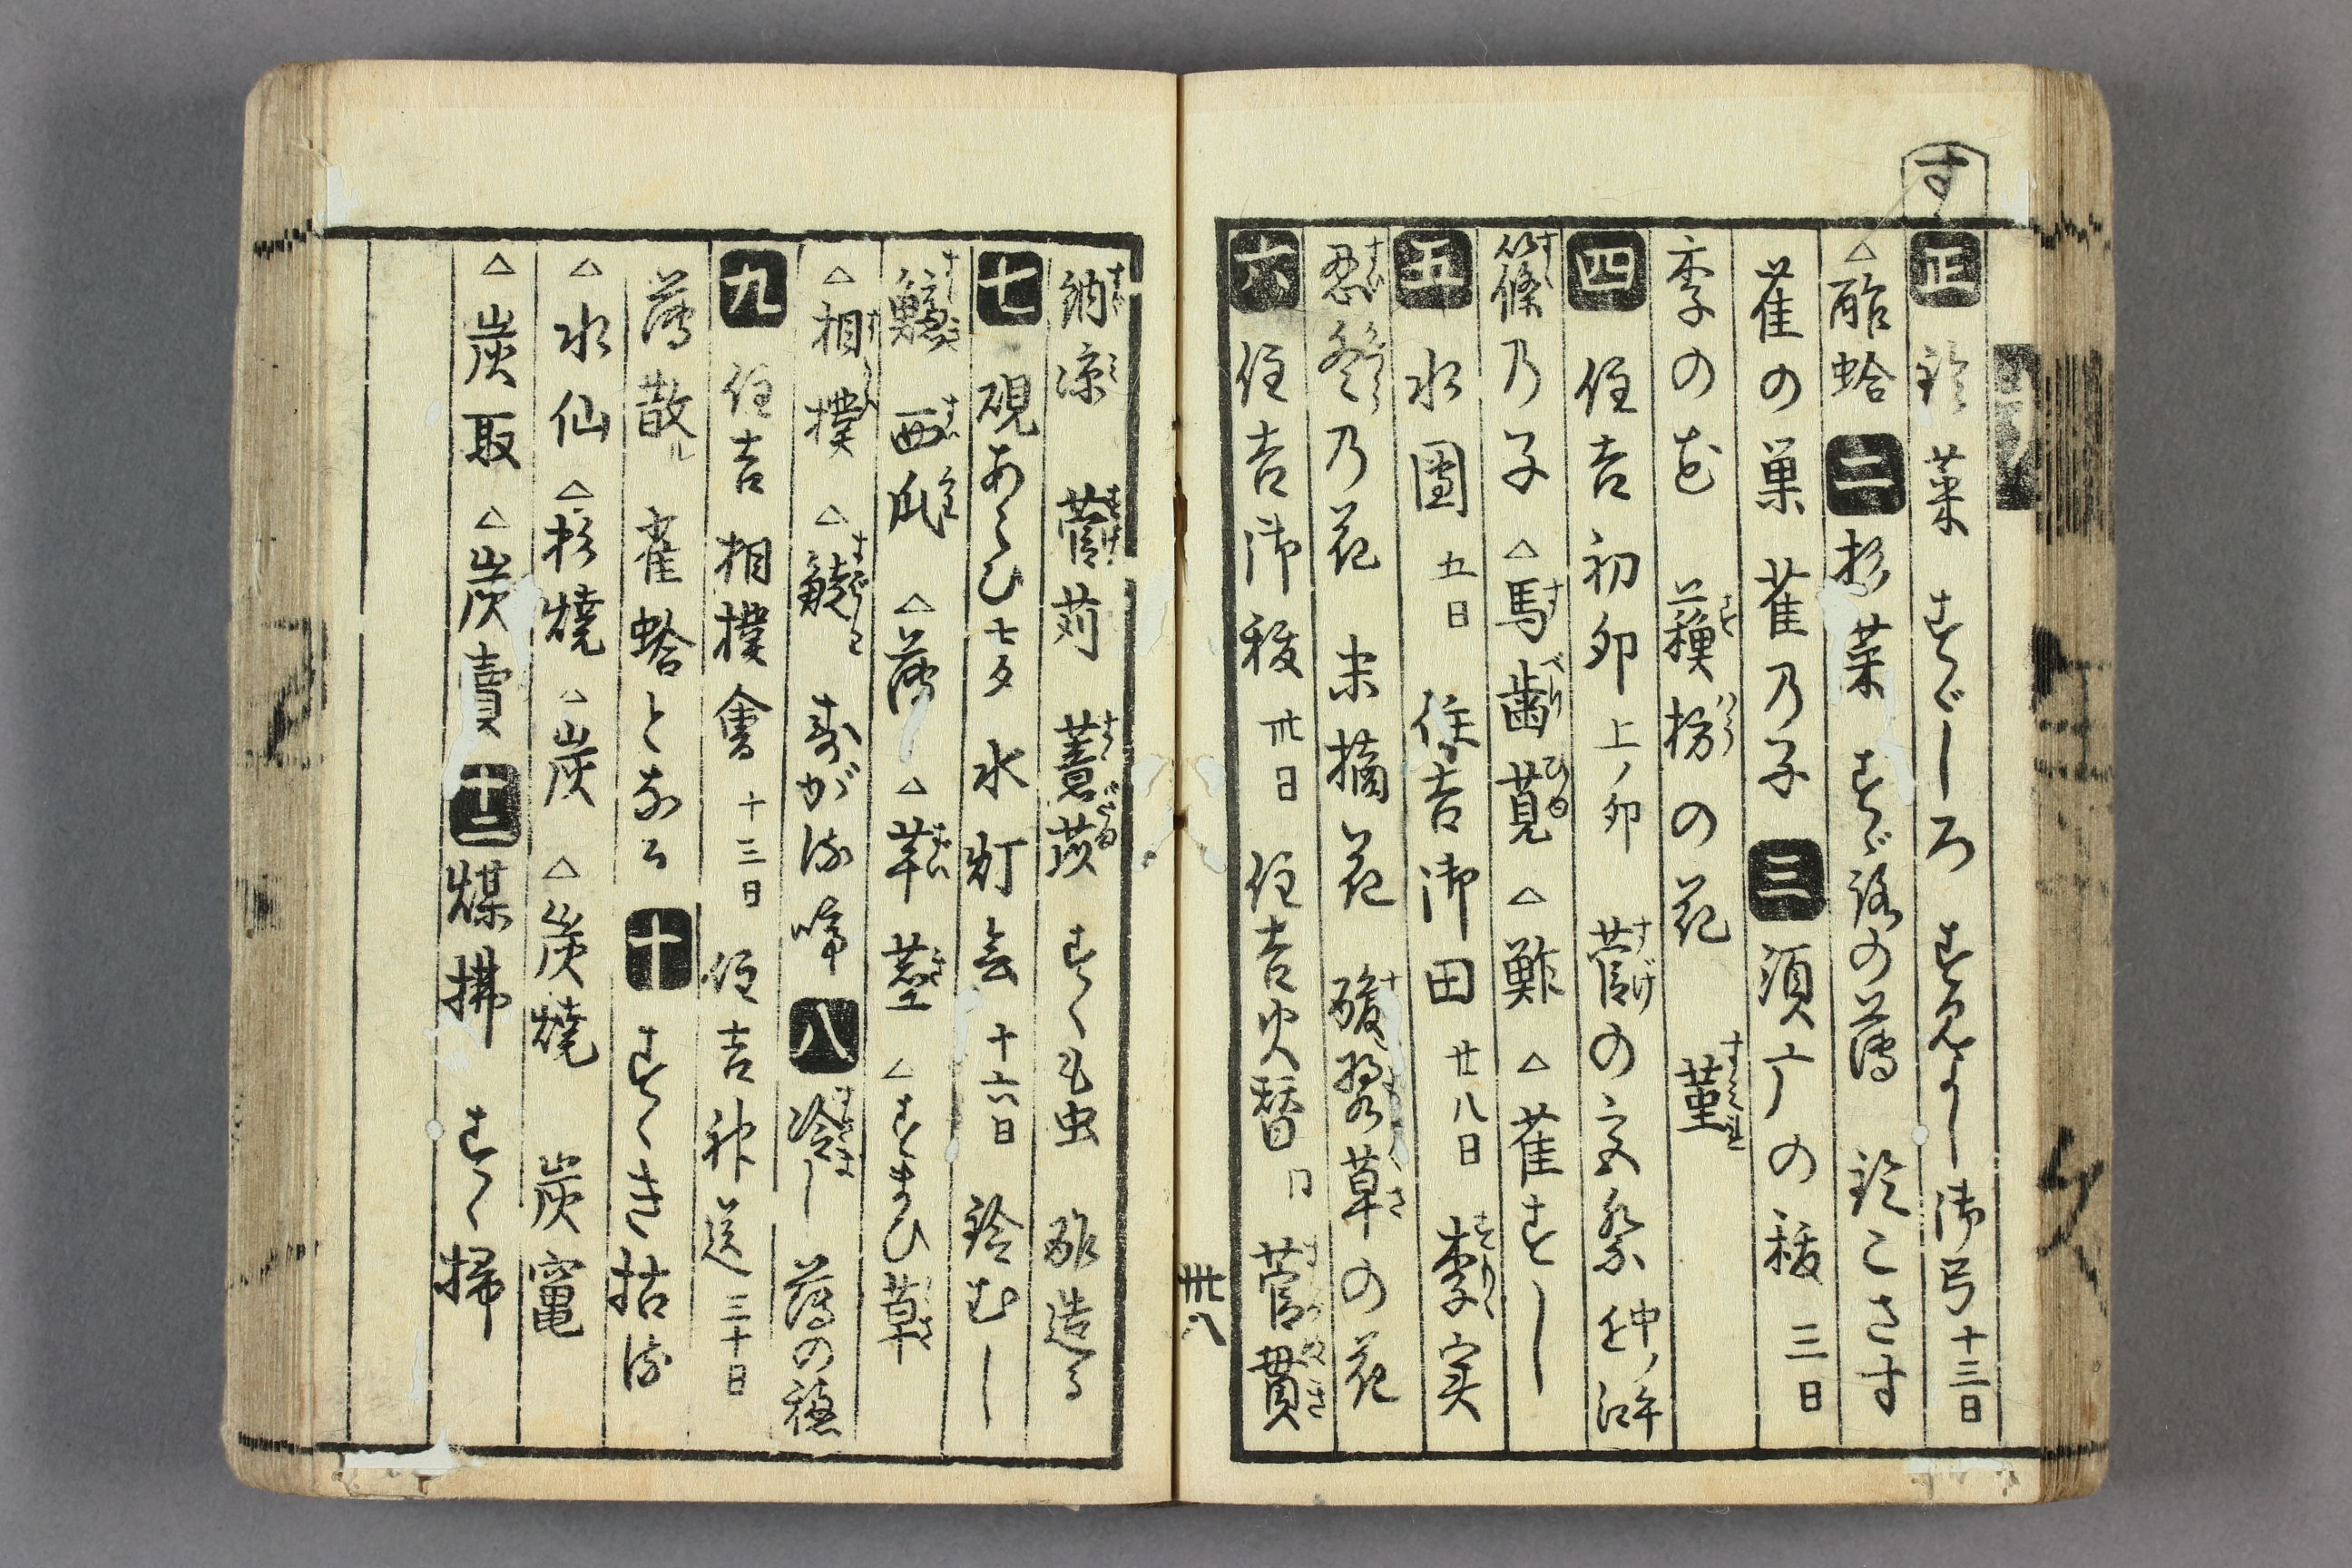 す
正 鈴菜 すゞしろ すみよし御弓 十三日
△酢蛤 二 杉菜 すゞ 路の薄 鈴こさす
雀の巣 雀乃子 三 須广の祓 三日
李のむ 蘓枋の花 菫
四 住吉初卯 上ノ卯 菅の宮祭 仲ノ
篠乃子 △馬歯莧 △鮓 △雀すし
五 水團 五日 住吉御田 廿八日 李実
忍冬乃花 末摘花 酸漿草の花
六 住吉御祓 卅日 住吉火替 日 菅貫
卅八
納涼 菅苅 蓍蓂 すくも虫 酢造る
七 硯あらひ 七夕 水灯会 十六日 鈴むし
鱁 西瓜 △薄 △芋莖 △すまひ草
△相撲 △ 寿がれ啼 八 冷し 薄の穂
九 住吉相撲會 十三日 住吉神送 三十日
薄散ル 雀蛤となる 十 すゝき枯る
△水仙 △杉焼 △炭 △炭焼 炭竃
△炭取 △炭賣 十二 煤拂 すゝ掃